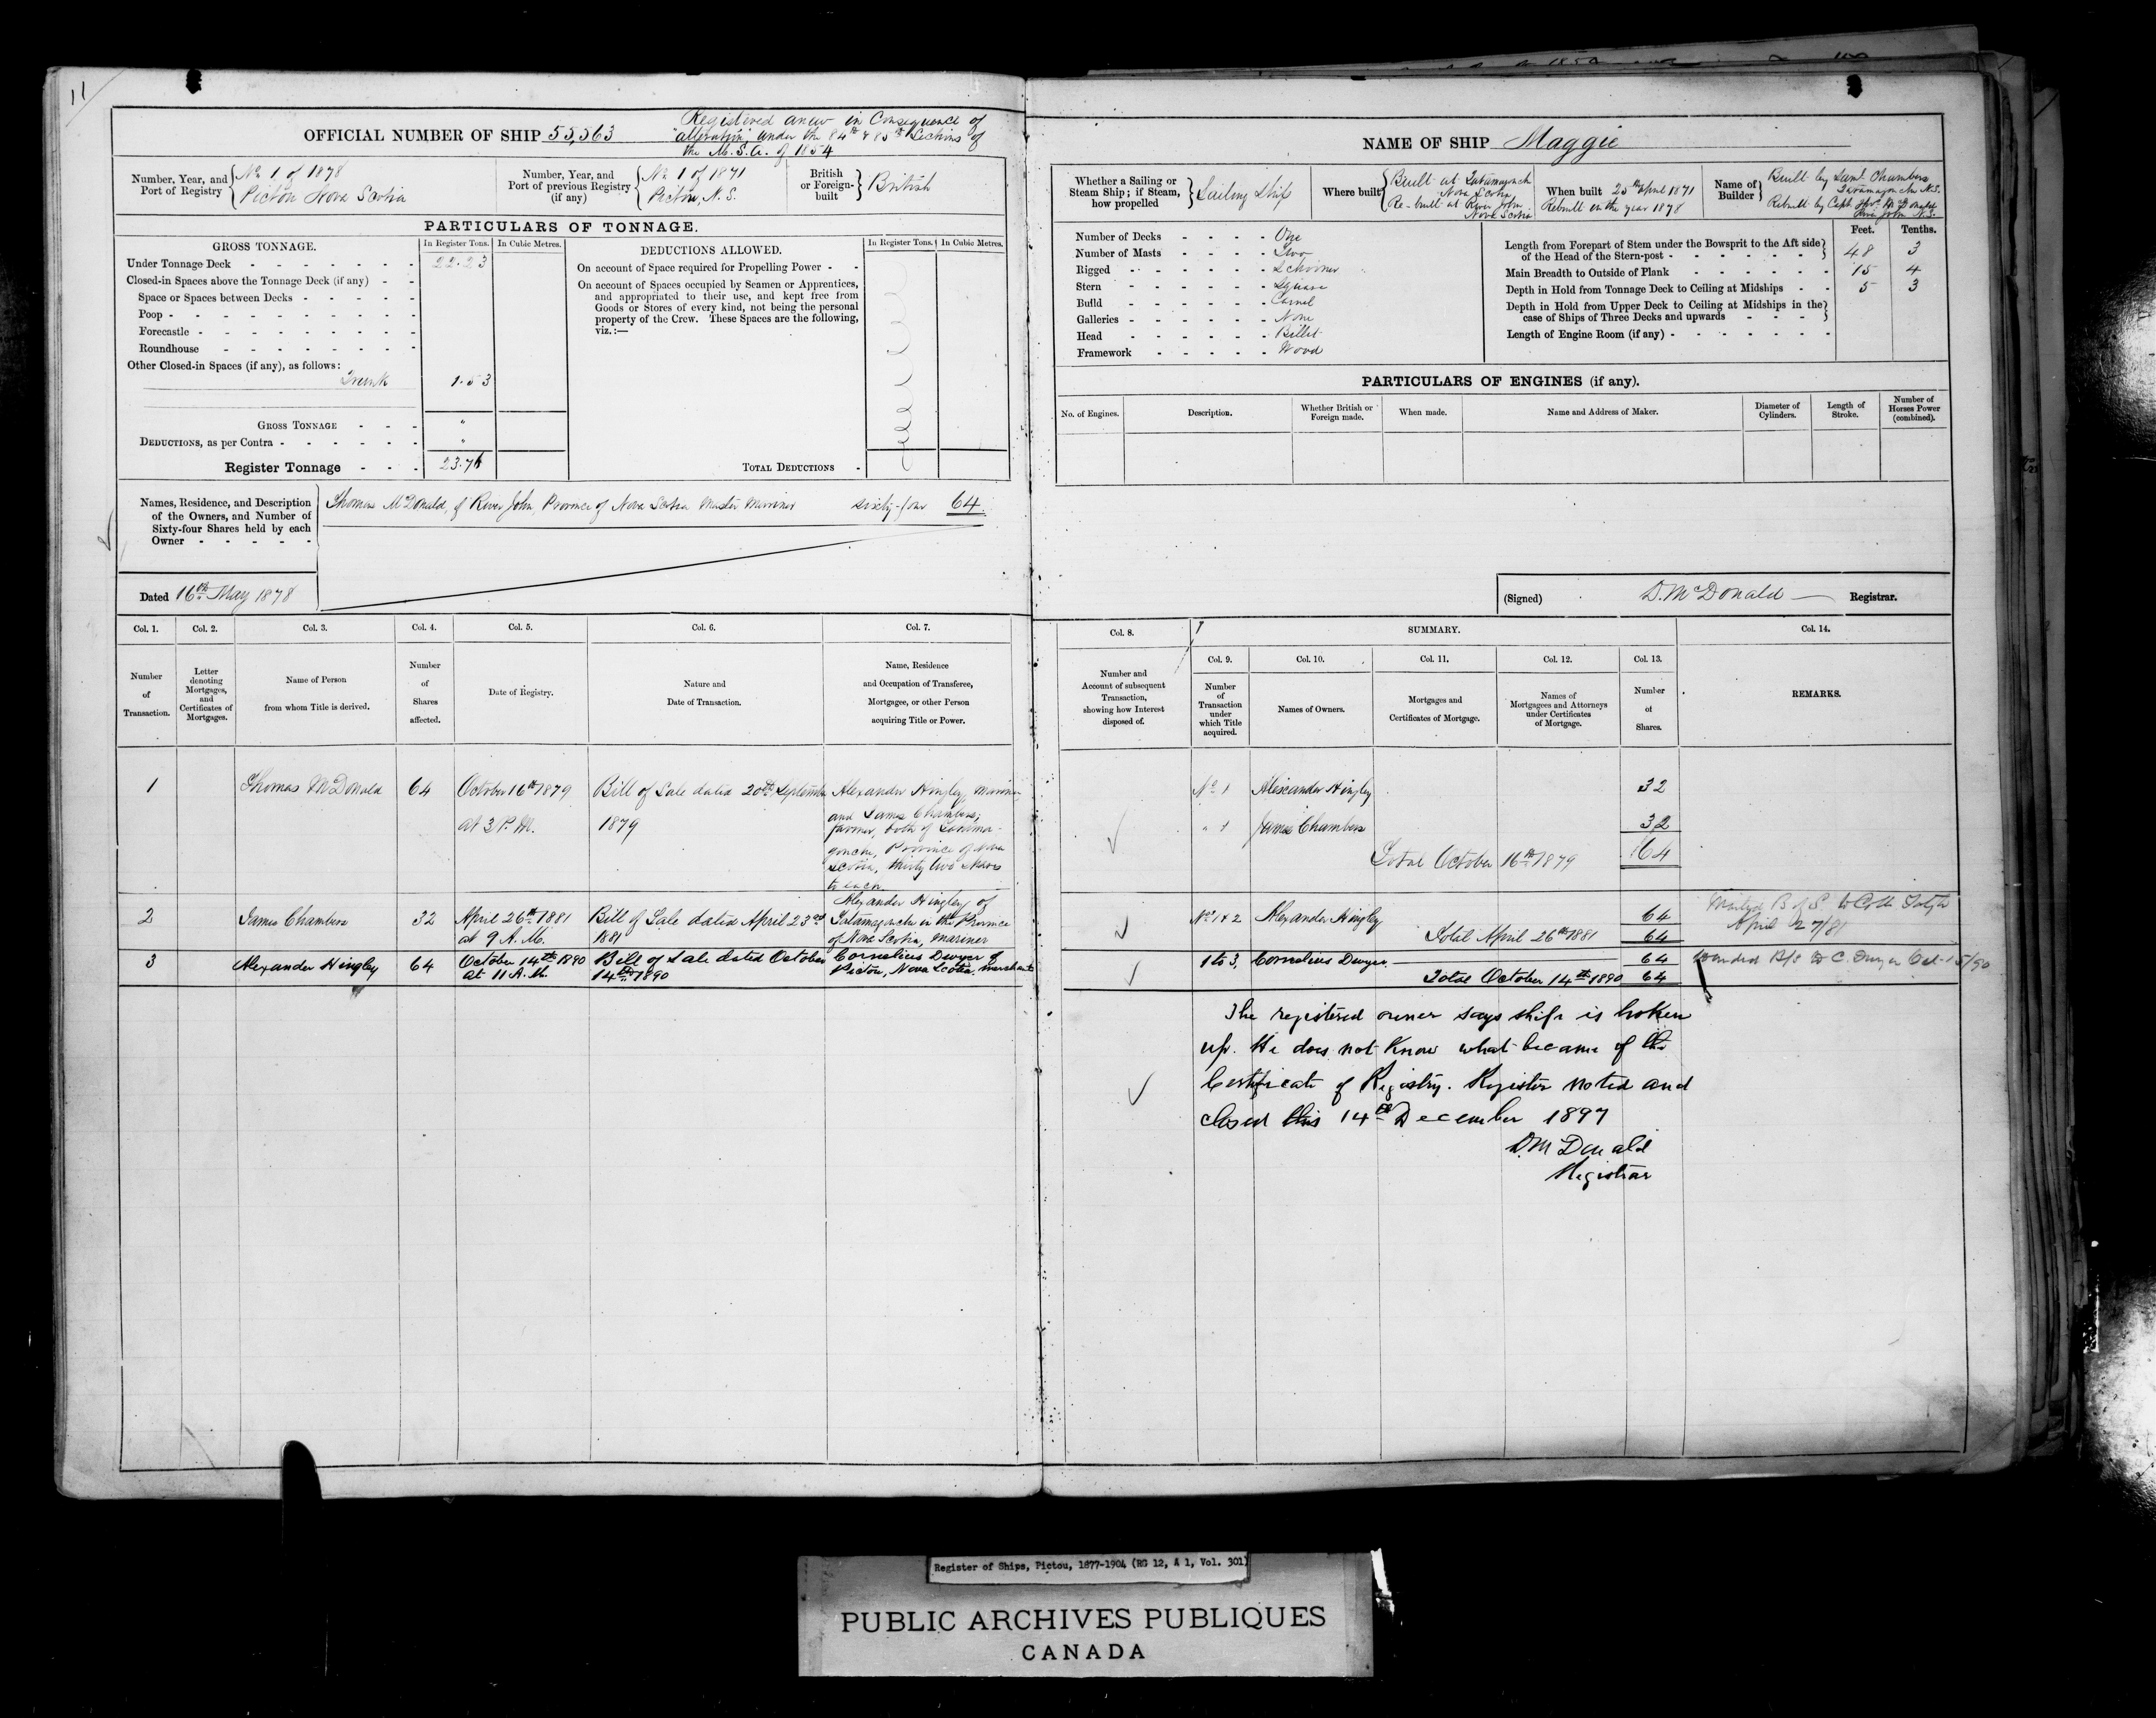 11
OFFICIAL NUMBER OF SHIP 55,563
Registered anew in Consequence of
"alteration" under the 84th & 85th Sections of
the M.S.A. of 1854
Number, Year, and Port of Registry
No 1 of 1878
Pictou Nova Scotia
Number, Year, and Port of previous Registry (if any)
No 1 of 1871
Pictou, N.S.
British or Foreign-built
British
PARTICULARS OF TONNAGE.
GROSS TONNAGE.
In Register Tons.
In Cubic Metres.
Under Tonnage Deck 22.23
Closed-in Spaces above the Tonnage Deck (if any)
Space or Spaces between Decks
Poop
Forecastle
Roundhouse
Other Closed-in Spaces (if any), as follows:
Trunk 1.53
GROSS TONNAGE "
DEDUCTIONS, as per Contra "
Register Tonnage 23.76
DEDUCTIONS ALLOWED.
In Register Tons.
In Cubic Metres.
On account of Space required for Propelling Power
On account of Spaces occupied by Seamen or Apprentices,
and appropriated to their use, and kept free from
Goods or Stores of every kind, not being the personal
property of the Crew. These Spaces are the following,
viz.:—
TOTAL DEDUCTIONS
Names, Residence, and Description
of the Owners, and Number of
Sixty-four Shares held by each
Owner
Thomas McDonald, of River John, Province of Nova Scotia Master Mariner sixty-four 64.
Dated 16th May 1878
Col. 1.
Col. 2.
Col. 3.
Col. 4.
Col. 5.
Col. 6.
Col. 7.
Number
of
Transaction.
Letter
denoting
Mortgages,
and
Certificates of
Mortgages.
Name of Person
from whom Title is derived.
Number
of
Shares
affected.
Date of Registry.
Nature and
Date of Transaction.
Name, Residence
and Occupation of Transferee,
Mortgagee, or other Person
acquiring Title or Power.
1
Thomas McDonald
64
October 16th 1879
at 3 P.M.
Bill of Sale dated 20th September
1879
Alexander Hingley, Mariner,
and James Chambers,
farmer, both of Tatama-
gouche, Province of Nova
Scotia, thirty two shares
to each
2
James Chambers
32
April 26th 1881
at 9 A.M.
Bill of Sale dated April 23rd
1881
Alexander Hingley of
Tatamagouche in the Province
of Nova Scotia, mariner
3
Alexander Hingley
64
October 14th 1890
at 11 A.M.
Bill of Sale dated October
14th 1890
Cornelius Dwyer of
Pictou, Nova Scotia. merchant
NAME OF SHIP Maggie
Whether a Sailing or
Steam Ship; if Steam,
how propelled
Sailing Ship
Where built
Built at Tatamagouche
Nova Scotia
Re-built at River John
Nova Scotia
When built 25th April 1871
Rebuilt in the year 1878
Name of
Builder
Built by Saml Chambers
Tatamagouche N.S.
Rebuilt by Capt. Thos. McDonald
River John N.S.
Number of Decks One
Number of Masts Two
Rigged Schooner
Stern Square
Build Carvel
Galleries None
Head Billet
Framework Wood
Feet.
Tenths.
Length from Forepart of Stem under the Bowsprit to the Aft side
of the Head of the Stern-post 48 3
Main Breadth to Outside of Plank 15 4
Depth in Hold from Tonnage Deck to Ceiling at Midships 5 3
Depth in Hold from Upper Deck to Ceiling at Midships in the
case of Ships of Three Decks and upwards
Length of Engine Room (if any)
PARTICULARS OF ENGINES (if any).
No. of Engines.
Description.
Whether British or
Foreign made.
When made.
Name and Address of Maker.
Diameter of
Cylinders.
Length of
Stroke.
Number of
Horses Power
(combined).
(Signed) D. McDonald Registrar.
Col. 8.
SUMMARY.
Col. 14.
Number and
Account of subsequent
Transaction,
showing how Interest
disposed of.
Col. 9.
Col. 10.
Col. 11.
Col. 12.
Col. 13.
Number
of
Transaction
under
which Title
acquired.
Names of Owners.
Mortgages and
Certificates of Mortgage.
Names of
Mortgagees and Attorneys
under Certificates
of Mortgage.
Number
of
Shares.
REMARKS.
No 1 Alexander Hingley 32
" 1 James Chambers 32
Total October 16th 1879 64
Nos 1 & 2 Alexander Hingley 64
Total April 26th 1881 64
B of S to
April 27/81
1 to 3, Cornelius Dwyer. 64
Total October 14th 1890 64
B/S to C. Dwyer Oct. 15/90
The registered owner says ship is broken
up. He does not know what became of the
Certificate of Registry. Register noted and
closed this 14th December 1897
D. McDonald
Registrar
Register of Ships, Pictou, 1877-1904 (RG 12, A 1, Vol. 301)
PUBLIC ARCHIVES PUBLIQUES
CANADA